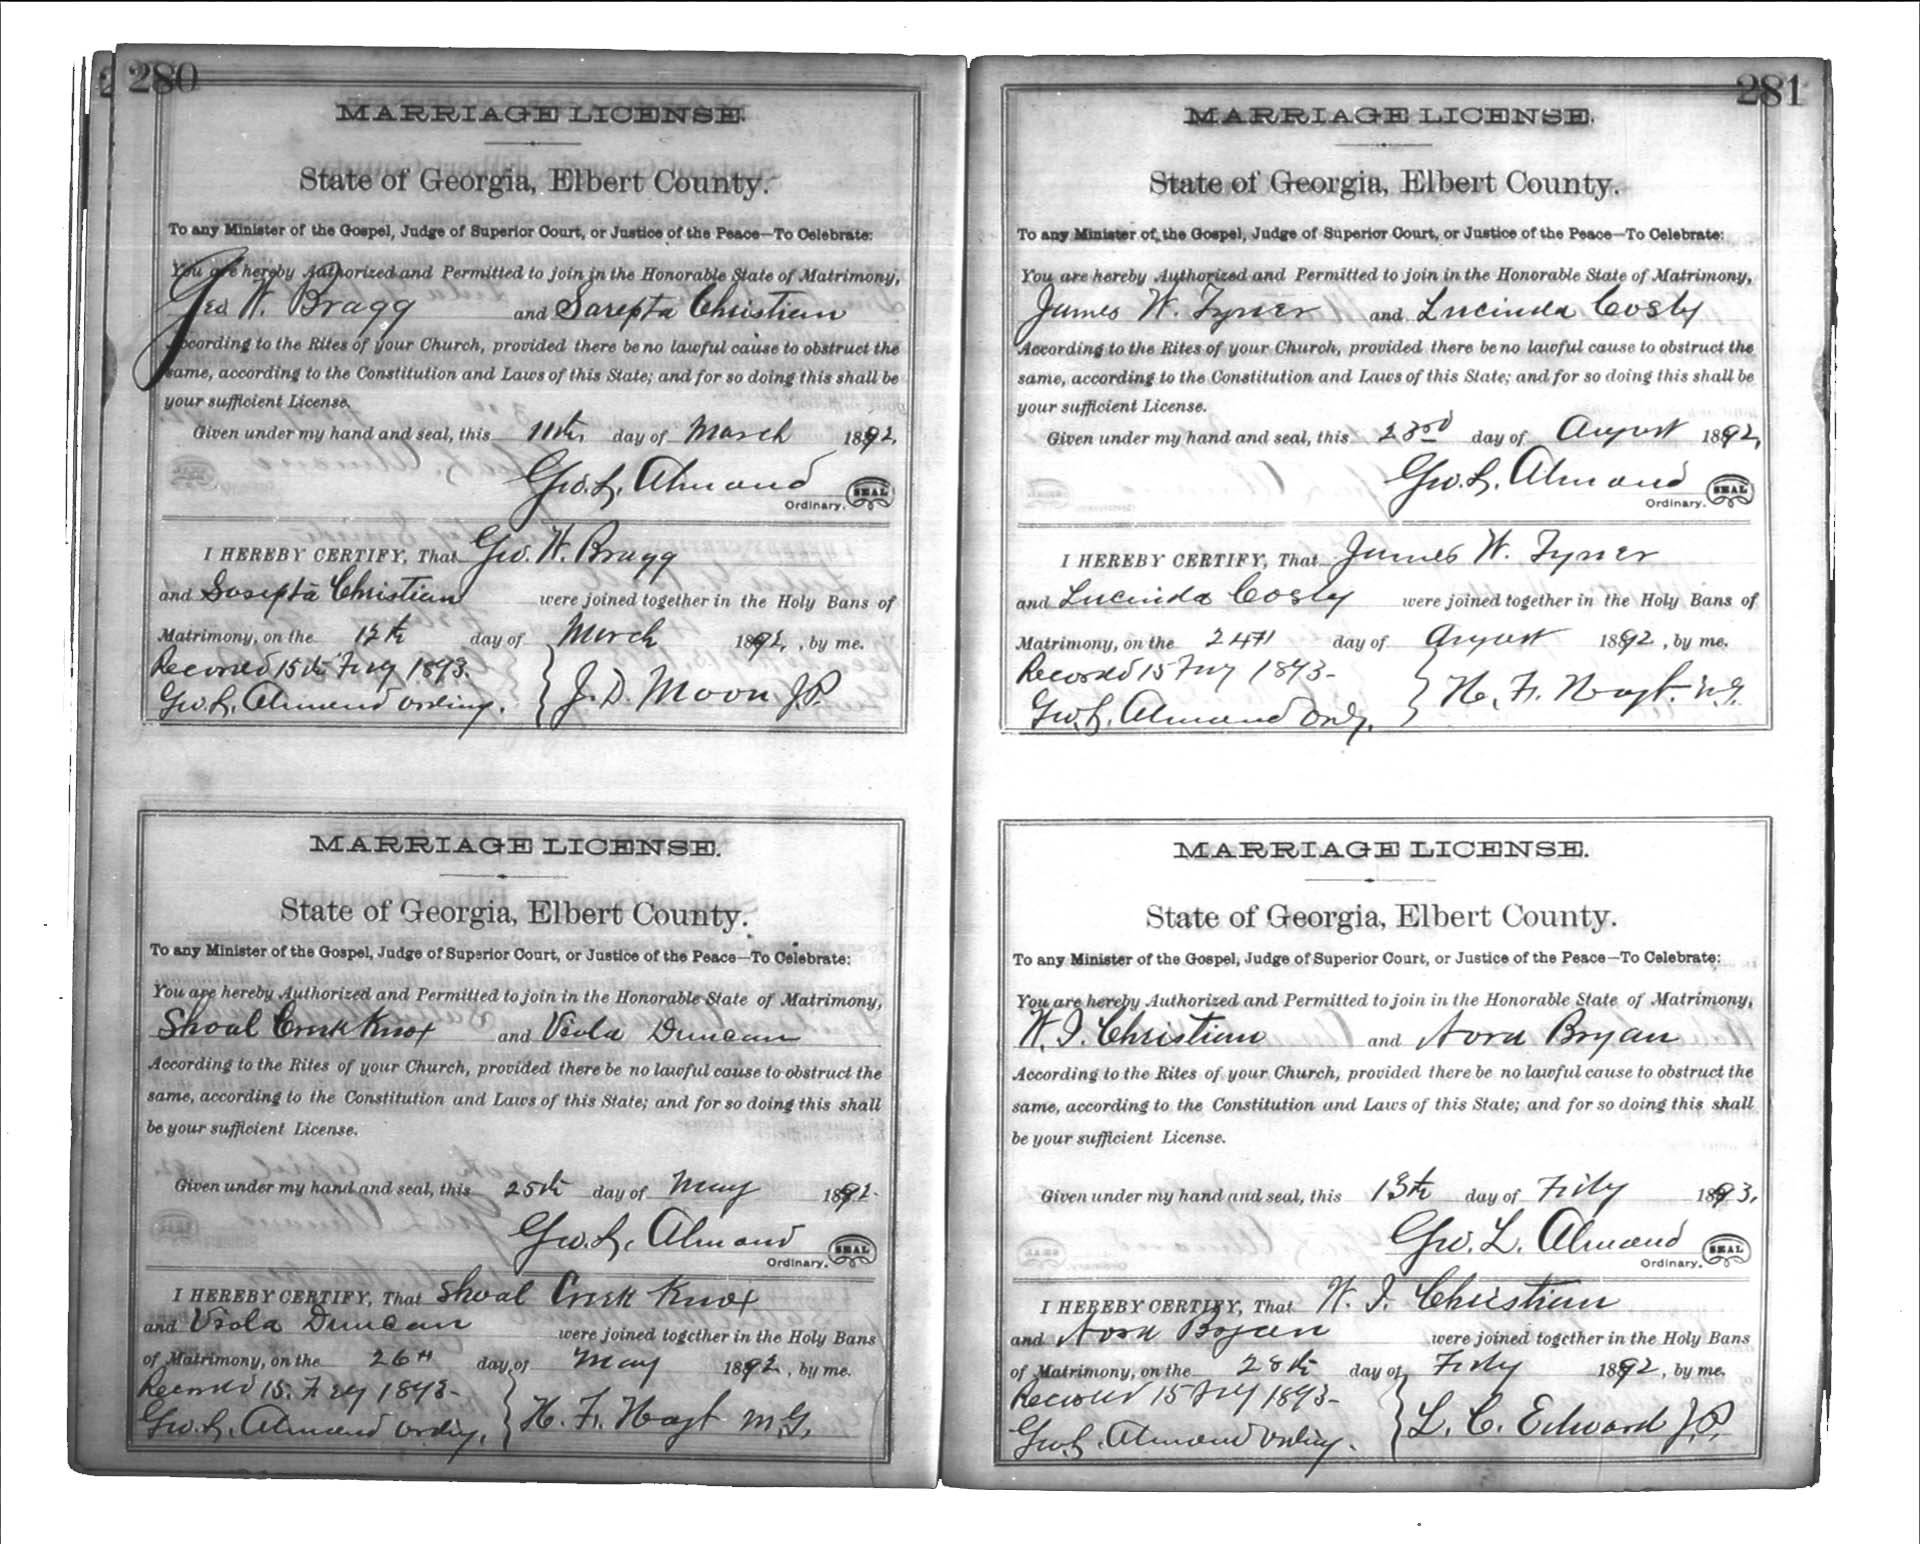 280
MARRIAGE LICENSE.
State of Georgia, Elbert County.
To any Minister of the Gospel, Judge of Superior Court, or Justice of the Peace—To Celebrate:
You are hereby Authorized and Permitted to join in the Honorable State of Matrimony,
Geo W. Bragg and Sarepta Christian
According to the Rites of your Church, provided there be no lawful cause to obstruct the
same, according to the Constitution and Laws of this State; and for so doing this shall be
your sufficient License.
Given under my hand and seal, this 11th day of March 1892,
Geo. L. Almand
Ordinary. SEAL
I HEREBY CERTIFY, That Geo. W. Bragg
and Sarepta Christian were joined together in the Holy Bans of
Matrimony, on the 12th day of March 1892, by me.
Recorded 15th Feby 1893.
Geo. L. Almand ordiny. J. D. Moon J.P.
MARRIAGE LICENSE.
State of Georgia, Elbert County.
To any Minister of the Gospel, Judge of Superior Court, or Justice of the Peace—To Celebrate:
You are hereby Authorized and Permitted to join in the Honorable State of Matrimony,
Shoal Creek Knox and Viola Duncan
According to the Rites of your Church, provided there be no lawful cause to obstruct the
same, according to the Constitution and Laws of this State; and for so doing this shall
be your sufficient License.
Given under my hand and seal, this 25th day of May 1892.
Geo. L. Almand
Ordinary. SEAL
I HEREBY CERTIFY, That Shoal Creek Knox
and Viola Duncan were joined together in the Holy Bans
of Matrimony, on the 26th day of May 1892, by me.
Recorded 15. Feby 1893-
Geo. L. Almand ordiny. H. F. Hoyt M.G.
281
MARRIAGE LICENSE.
State of Georgia, Elbert County.
To any Minister of the Gospel, Judge of Superior Court, or Justice of the Peace—To Celebrate:
You are hereby Authorized and Permitted to join in the Honorable State of Matrimony,
James W. Tyner and Lucinda Cosby
According to the Rites of your Church, provided there be no lawful cause to obstruct the
same, according to the Constitution and Laws of this State; and for so doing this shall be
your sufficient License.
Given under my hand and seal, this 23rd day of August 1892,
Geo. L. Almand
Ordinary. SEAL
I HEREBY CERTIFY, That James W. Tyner
and Lucinda Cosby were joined together in the Holy Bans of
Matrimony, on the 24th day of August 1892, by me.
Recorded 15 Feby 1893-
Geo. L. Almand Ordy. H. F. Hoyt. M.G.
MARRIAGE LICENSE.
State of Georgia, Elbert County.
To any Minister of the Gospel, Judge of Superior Court, or Justice of the Peace—To Celebrate:
You are hereby Authorized and Permitted to join in the Honorable State of Matrimony,
W. I. Christian and Nora Bryan
According to the Rites of your Church, provided there be no lawful cause to obstruct the
same, according to the Constitution and Laws of this State; and for so doing this shall
be your sufficient License.
Given under my hand and seal, this 13th day of Feby 1893,
Geo. L. Almand
Ordinary. SEAL
I HEREBY CERTIFY, That W. I. Christian
and Nora Bryan were joined together in the Holy Bans
of Matrimony, on the 28th day of Feby 1892, by me.
Recorded 15 Feby 1893-
Geo. L. Almand Ordiny. L. C. Edward J.P.